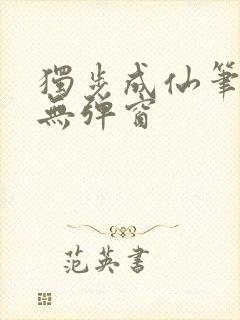 獨步成仙筆
無彈窗
范英書